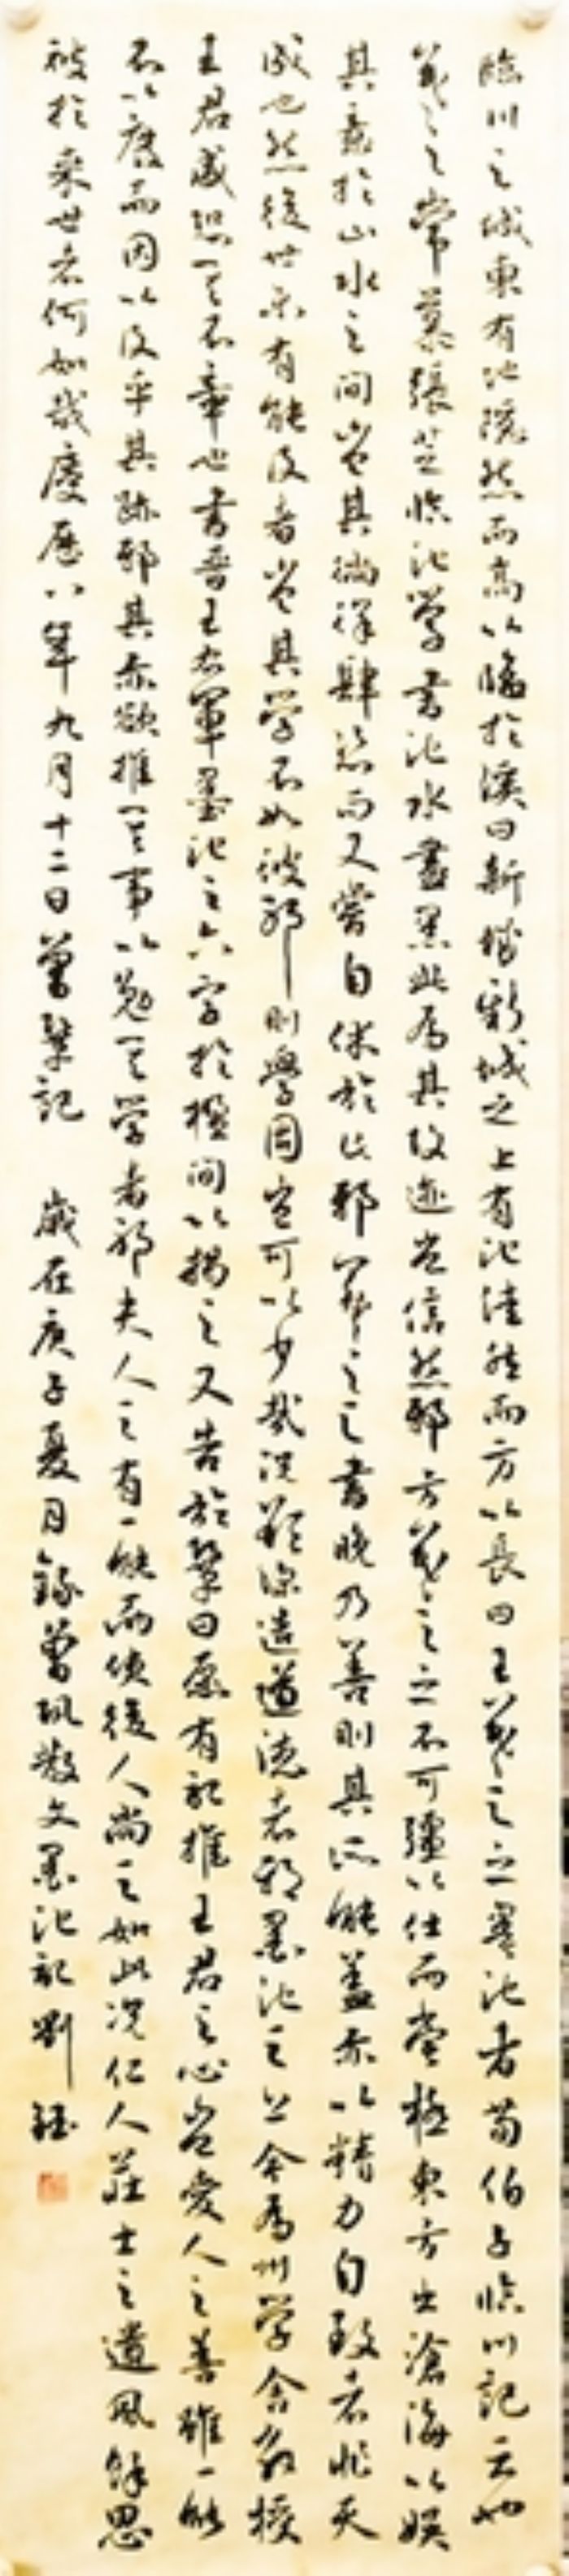 臨川之城東有地隱然而高以臨於溪曰新城新城之上有池窪然而方以長曰王羲之之墨池者荀伯子臨川記云也
羲之嘗慕張芝臨池學書池水盡黑此為其故迹豈信然邪方羲之之不可彊以仕而嘗極東方出滄海以娛
其意於山水之間豈其徜徉肆恣而又嘗自休於此邪羲之之書晚乃善則其所能蓋亦以精力自致者非天
成也然後世未有能及者豈其學不如彼邪則學固豈可以少哉況欲深造道德者邪墨池之上今為州學舍教授
王君盛恐其不章也書晉王右軍墨池之六字於楹間以揭之又告於鞏曰願有記推王君之心豈愛人之善雖一能
不以廢而因以及乎其跡邪其亦欲推其事以勉其學者邪夫人之有一能而使後人尚之如此況仁人莊士之遺風餘思
被於來世者何如哉慶曆八年九月十二日曾鞏記 歲在庚子夏月錄曾鞏散文墨池記劉